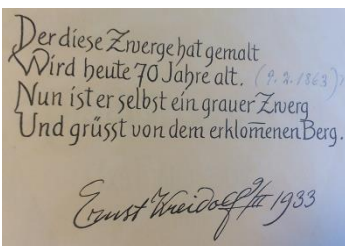 Der diese Zwerge hat gemalt
Wird heute 70 Jahre alt. (9.2.1863)
Nun ist er selbst ein grauer Zwerg
Und grüsst von dem erklom̅enen Berg.
Ernst Kreidolf 9/II 1933